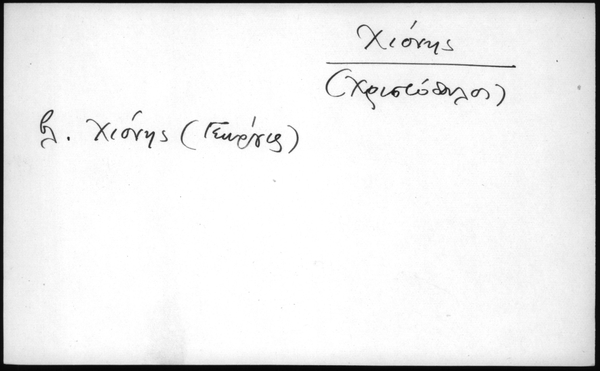 Χιόνης
(Χριστόδουλος)
βλ. Χιόνης (Γεώργιος)